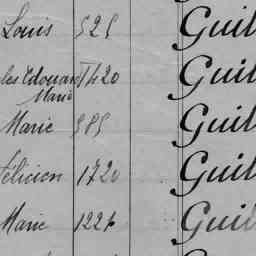 Louis 525 Guil
les Edouard 1420 Guil
Marie
Marie 585 Guil
Félicien 1720 Guil
Marie 1221 Guil